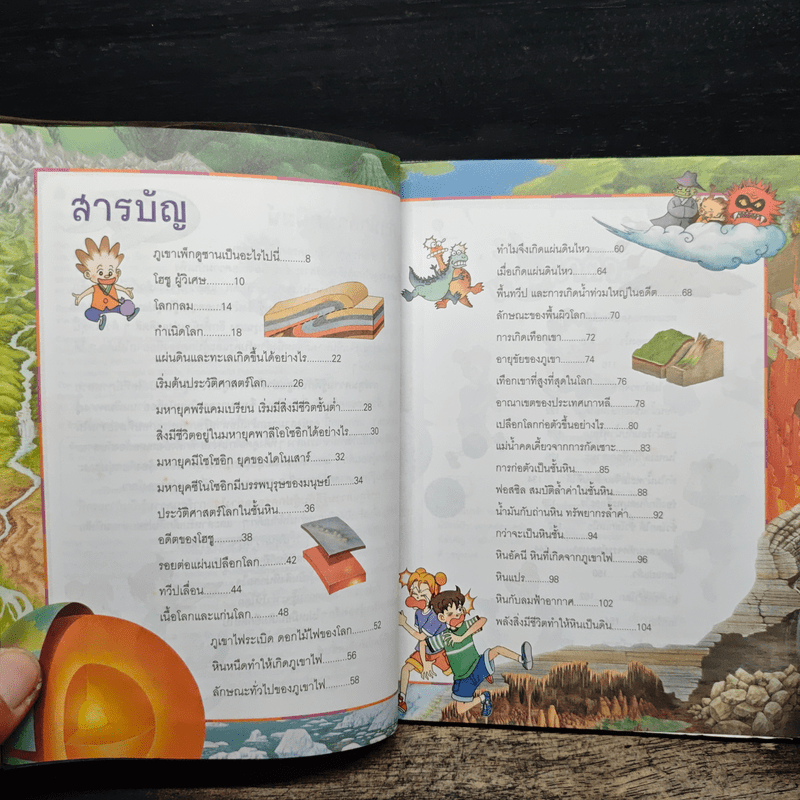 สารบัญ
ภูเขาเพ็กดูซานเป็นอะไรไปนี่........8
โฮซู ผู้วิเศษ..........10
โลกกลม..........14
กำเนิดโลก..........18
แผ่นดินและทะเลเกิดขึ้นได้อย่างไร........22
เริ่มต้นประวัติศาสตร์โลก..........26
มหายุคพรีแคมเบรียน เริ่มมีสิ่งมีชีวิตชั้นต่ำ........28
สิ่งมีชีวิตอยู่ในมหายุคพาลีโอโซอิกได้อย่างไร........30
มหายุคมีโซโซอิก ยุคของไดโนเสาร์........32
มหายุคซีโนโซอิกมีบรรพบุรุษของมนุษย์........34
ประวัติศาสตร์โลกในชั้นหิน..........36
อดีตของโฮซู..........38
รอยต่อแผ่นเปลือกโลก..........42
ทวีปเลื่อน..........44
เนื้อโลกและแก่นโลก..........48
ภูเขาไฟระเบิด ดอกไม้ไฟของโลก........52
หินหนืดทำให้เกิดภูเขาไฟ........56
ลักษณะทั่วไปของภูเขาไฟ........58
ทำไมจึงเกิดแผ่นดินไหว.........60
เมื่อเกิดแผ่นดินไหว.........64
พื้นทวีป และการเกิดน้ำท่วมใหญ่ในอดีต........68
ลักษณะของพื้นผิวโลก.........70
การเกิดเทือกเขา.........72
อายุขัยของภูเขา.........74
เทือกเขาที่สูงที่สุดในโลก.........76
อาณาเขตของประเทศเกาหลี.........78
เปลือกโลกก่อตัวขึ้นอย่างไร.........80
แม่น้ำคดเคี้ยวจากการกัดเซาะ.........83
การก่อตัวเป็นชั้นหิน.........85
ฟอสซิล สมบัติล้ำค่าในชั้นหิน.........88
น้ำมันกับถ่านหิน ทรัพยากรล้ำค่า.........92
กว่าจะเป็นหินชั้น.........94
หินอัคนี หินที่เกิดจากภูเขาไฟ.........96
หินแปร.........98
หินกับลมฟ้าอากาศ.........102
พลังสิ่งมีชีวิตทำให้หินเป็นดิน.........104